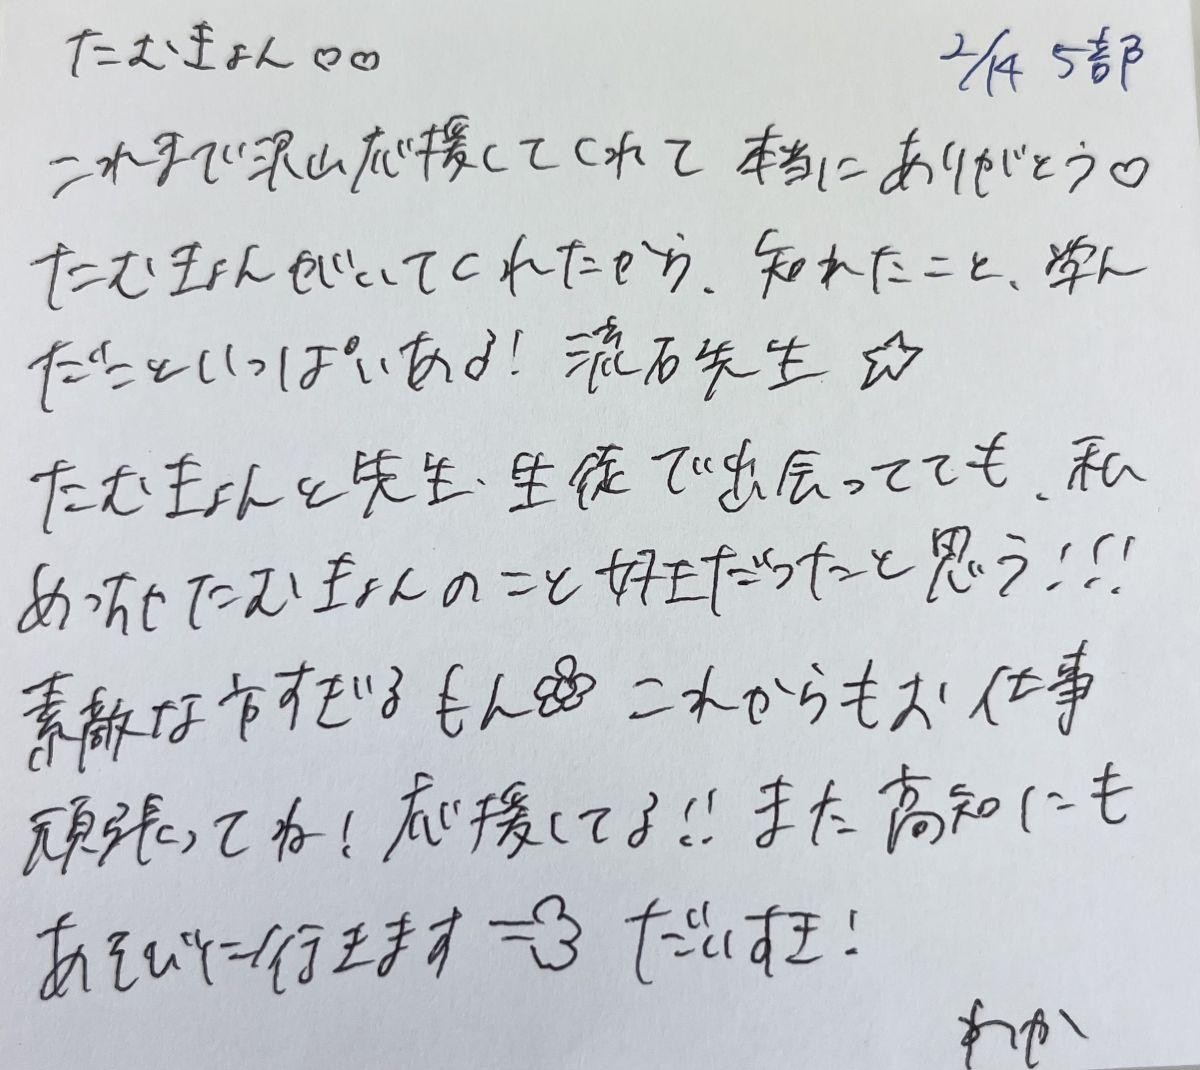 たむきょん♡♡
2/14 5部
これまで沢山応援してくれて本当にありがとう♡
たむきょんがいてくれたから、知れたこと、学ん
だこといっぱいある!流石先生☆
たむきょんと先生、生徒で出会ってても、私
めっちゃたむきょんのこと好きだったと思う!!!
素敵な方すぎるもん これからもお仕事
頑張ってね!応援してる!!また高知にも
あそびに行きます だいすき!
わか